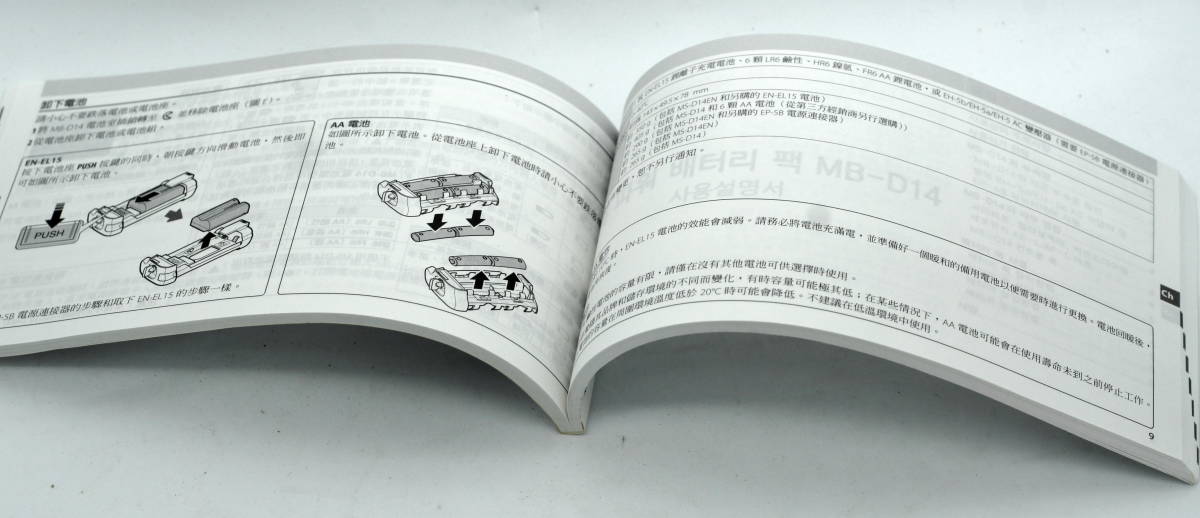 卸下電池
請小心不要跌落電池或電池座。
1 將 MB-D14 電池室插鎖轉至 並移除電池座 (圖 C)。
2 從電池座卸下電池或電池組。
EN-EL15
按下電池座 PUSH 按鍵的同時，朝按鍵方向滑動電池，然後即
可如圖所示卸下電池。
PUSH
AA 電池
如圖所示卸下電池。從電池座上卸下電池時請小心不要跌落
池。
-5B 電源連接器的步驟和取下 EN-EL15 的步驟一樣。
EN-EL15 鋰離子充電電池、6 顆 LR6 鹼性、HR6 鎳氫、FR6 AA 鋰電池，或 EH-5b/EH-5a/EH-5 AC 變壓器 (需要 EP-5B 電源連接器)
49.5×78 mm
(包括 MS-D14EN 和另購的 EN-EL15 電池)
(包括 MS-D14 和 6 顆 AA 電池 (從第三方經銷商另行選購))
(包括 MS-D14EN 和另購的 EP-5B 電源連接器)
(包括 MS-D14EN)
(包括 MS-D14)
變更，恕不另行通知。
배터리 팩 MB-D14
사용설명서
時，EN-EL15 電池的效能會減弱。請務必將電池充滿電，並準備好一個暖和的備用電池以便需要時進行更換。電池回暖後，
電池的容量有限，請僅在沒有其他電池可供選擇時使用。
品牌和儲存環境的不同而變化，有時容量可能極其低；在某些情況下，AA 電池可能會在使用壽命未到之前停止工作。
容量在周圍環境溫度低於 20°C 時可能會降低。不建議在低溫環境中使用。
Ch
9